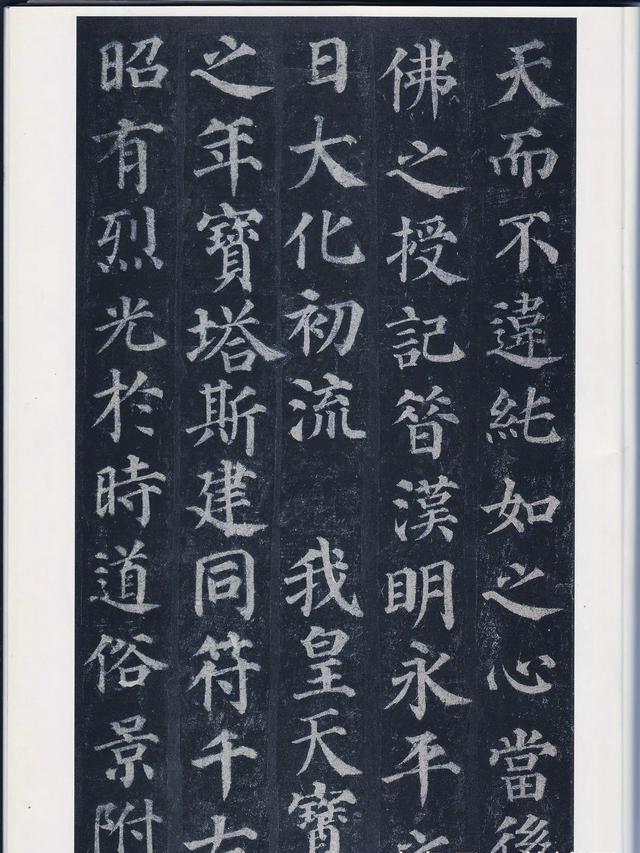 天而不違純如之心當後
佛之授記昔漢明永平
日大化初流 我皇天寶
之年寶塔斯建同符千
昭有烈光於時道俗景附